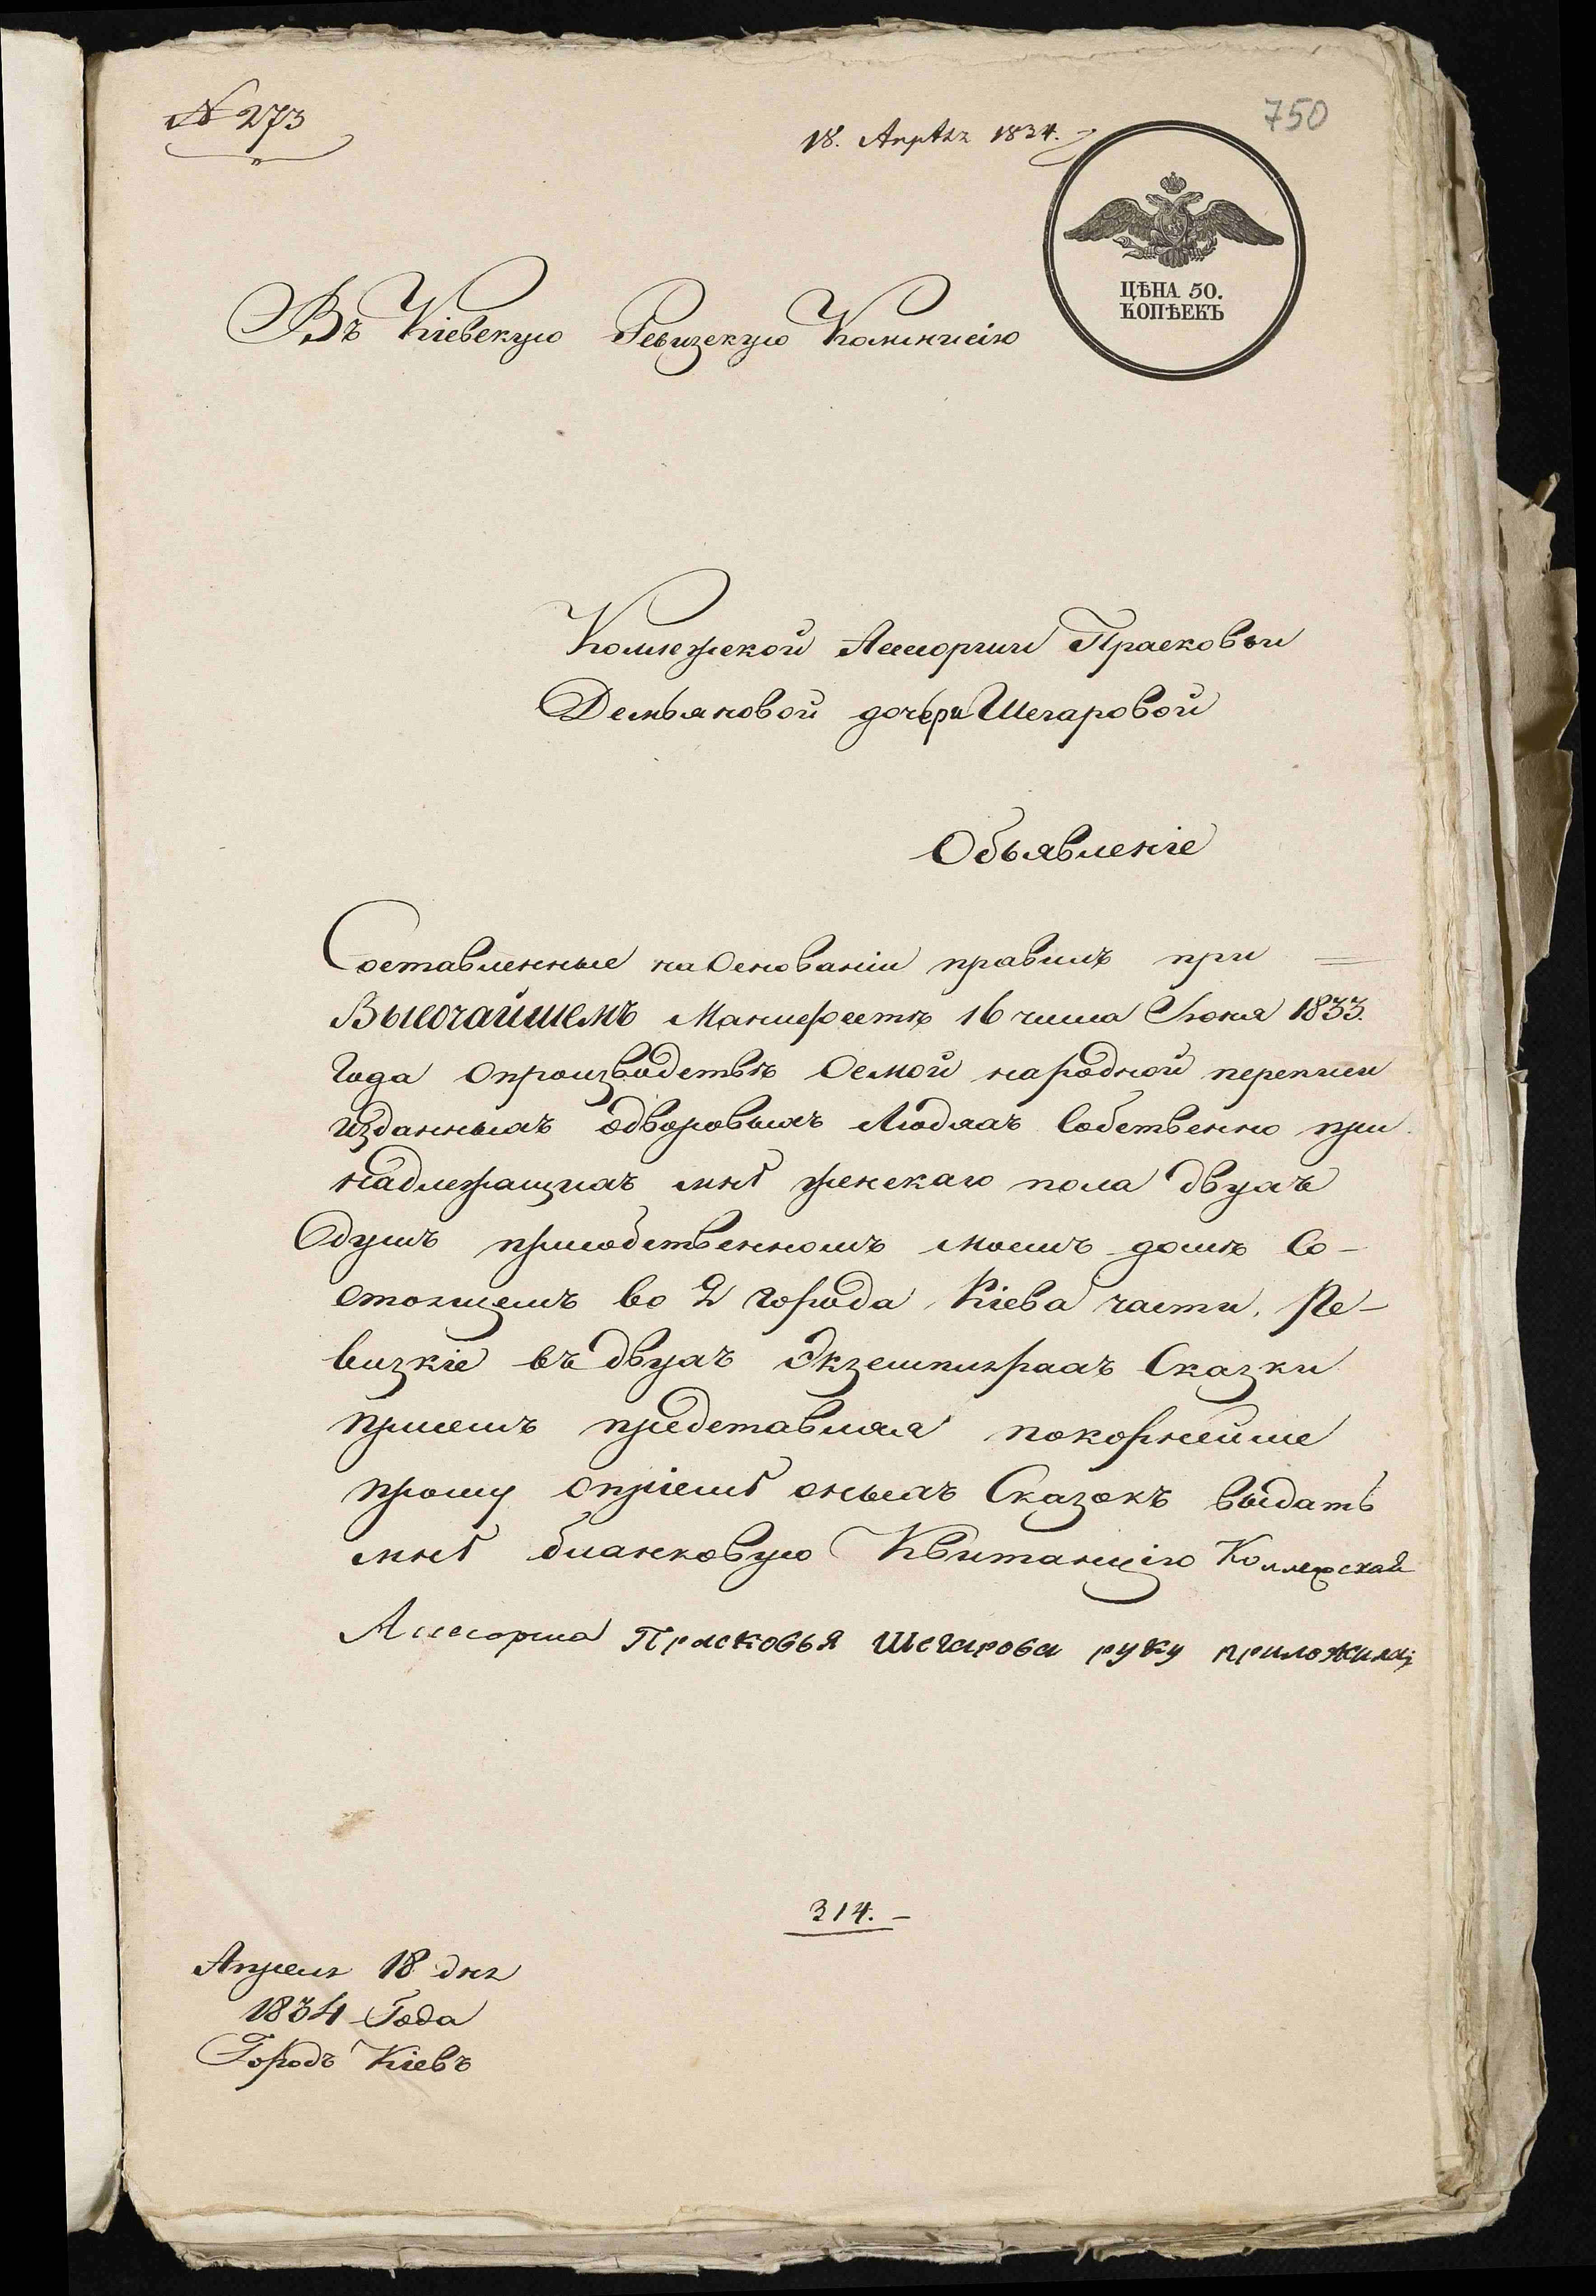 № 273
750
18. Апрѣля 1834.
ЦѢНА 50.
КОПѢЕКЪ
Въ Кіевскую Ревизскую Коммисію
Коллежской Ассесорши Прасковьи
Демьяновой дочери Шегаровой
Объявленіе
Составленные на Основаніи правилъ при =
Высочайшемъ Манифестѣ 16 числа Іюня 1833.
Года О производствѣ Осмой народной переписи
изданныхъ о дворовыхъ Людяхъ Собственно при
надлежащихъ мнѣ женскаго пола двухъ
Душъ при собственномъ моемъ домѣ Со-
стоящемъ во 2 города Кіева части, Ре-
визкіе въ двухъ Экземплярахъ Сказки
присемъ представляя покорнейше
прошу о пріемѣ оныхъ Сказокъ выдать
мнѣ бланковую Квитанцію Коллежская
Ассесорша Прасковья Шегарова руку приложила
314. -
Апреля 18 дня
1834 Года
Городъ Кіевъ